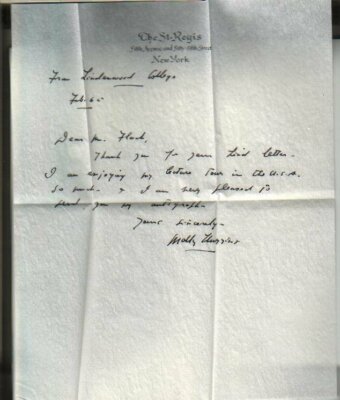 The St. Regis
Fifth Avenue and Fifty-fifth Street
New York
From Lindenwood College
Feb. 65
Dear Mr.
Thank you for your kind letter.
I am enjoying my lecture tour in the U.S.A.
so much. & I am very pleased to
send you my autograph
Yours sincerely.
Molly Huggins